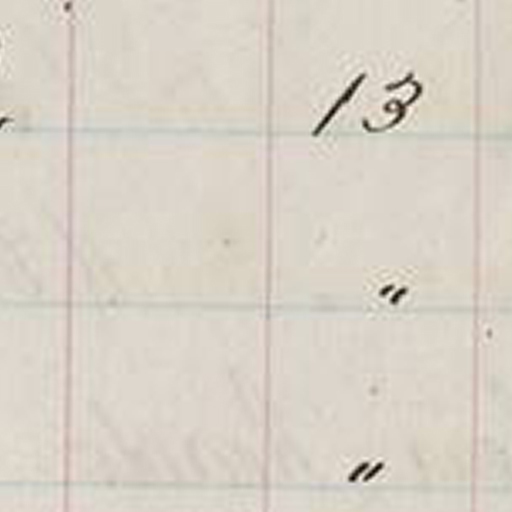 13
"
"